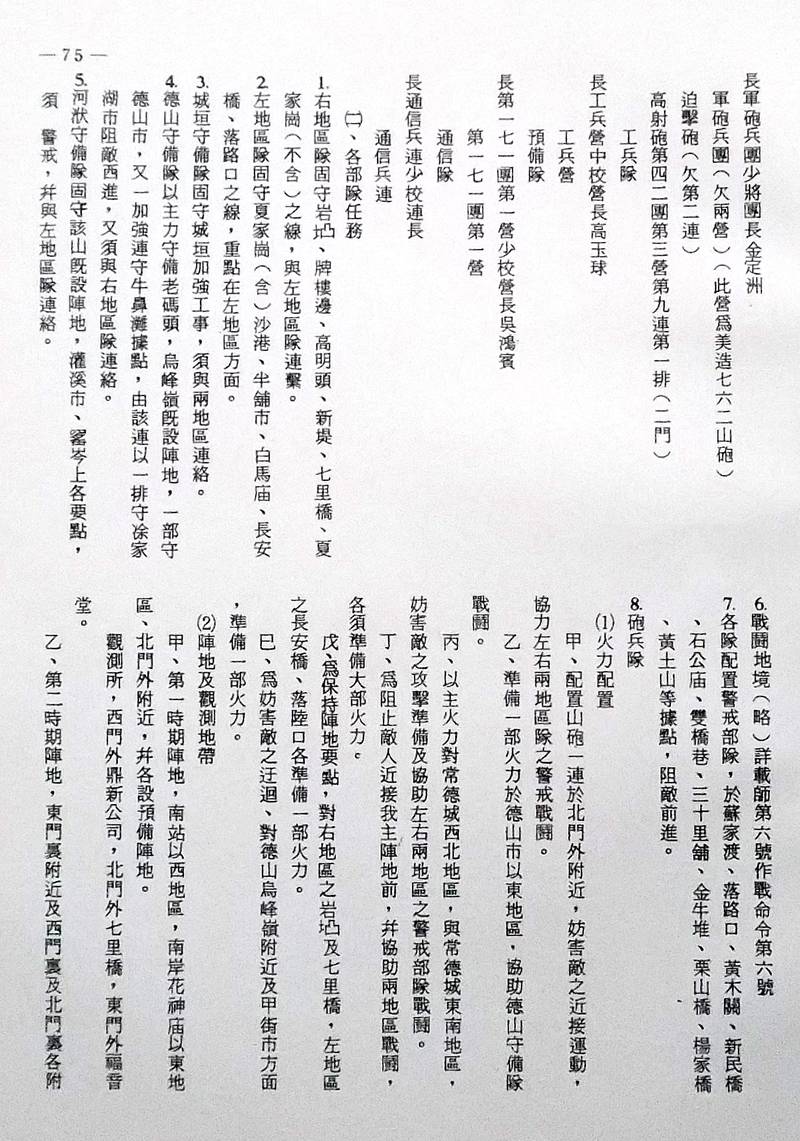 —75—
長軍砲兵團少將團長金定洲
軍砲兵團（欠兩營）（此營爲美造七六二山砲）
迫擊砲（欠第二連）
高射砲第四二團第三營第九連第一排（二門）
工兵隊
長工兵營中校營長高玉球
工兵營
預備隊
長第一七一團第一營少校營長吳鴻賓
第一七一團第一營
通信隊
長通信兵連少校連長
通信兵連
㈡、各部隊任務
1.右地區隊固守岩凸、牌樓邊、高明頭、新堤、七里橋、夏
家崗（不含）之線，與左地區隊連繫。
2.左地區隊固守夏家崗（含）沙港、半舖市、白馬庙、長安
橋、落路口之線，重點在左地區方面。
3.城垣守備隊固守城垣加強工事，須與兩地區連絡。
4.德山守備隊以主力守備老碼頭，烏峰嶺旣設陣地，一部守
德山市，又一加強連守牛鼻灘據點，由該連以一排守凃家
湖市阻敵西進，又須與右地區隊連絡。
5.河洑守備隊固守該山旣設陣地，灌溪市、岑上各要點，
須　警戒，幷與左地區隊連絡。
6.戰鬪地境（略）詳載師第六號作戰命令第六號
7.各隊配置警戒部隊，於蘇家渡、落路口、黃木關、新民橋
、石公庙、雙橋巷、三十里舖、金牛堆、栗山橋、楊家橋
、黃土山等據點，阻敵前進。
8.砲兵隊
⑴火力配置
甲、配置山砲一連於北門外附近，妨害敵之近接運動，
協力左右兩地區隊之警戒戰鬪。
乙、準備一部火力於德山市以東地區，協助德山守備隊
戰鬪。
丙、以主火力對常德城西北地區，與常德城東南地區，
妨害敵之攻擊準備及協助左右兩地區之警戒部隊戰鬪。
丁、爲阻止敵人近接我主陣地前，幷協助兩地區戰鬪，
各須準備大部火力。
戊、爲保持陣地要點，對右地區之岩凸及七里橋，左地區
之長安橋、落陸口各準備一部火力。
巳、爲妨害敵之迂迴、對德山烏峰嶺附近及甲街市方面
，準備一部火力。
⑵陣地及觀測地帶
甲、第一時期陣地，南站以西地區，南岸花神庙以東地
區、北門外附近，幷各設預備陣地。
觀測所，西門外鼎新公司，北門外七里橋，東門外福音
堂。
乙、第二時期陣地，東門裏附近及西門裏及北門裏各附